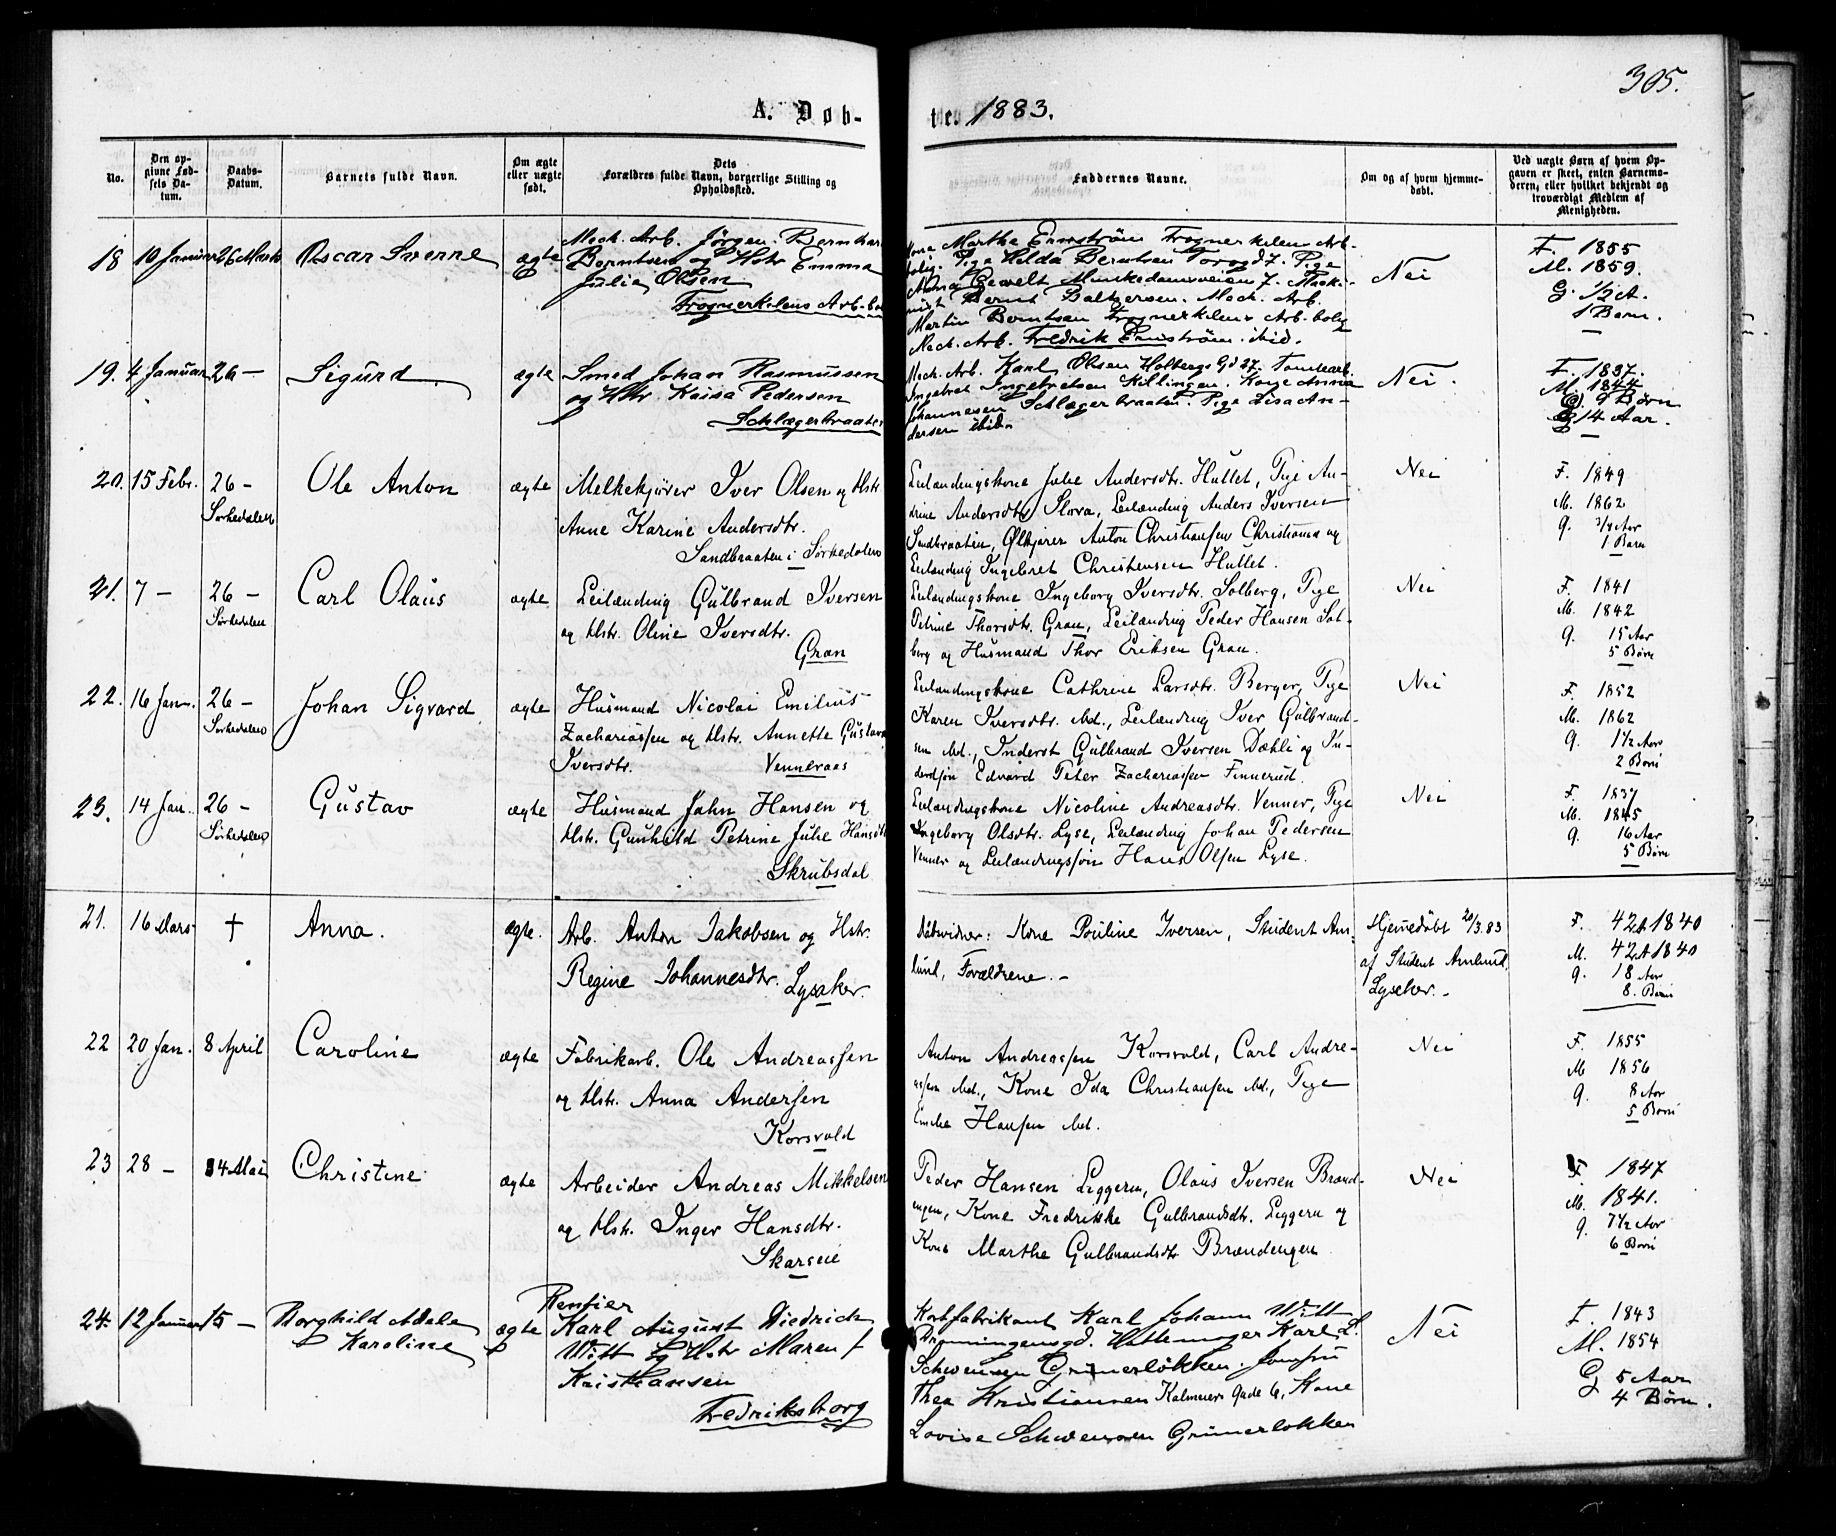 305.
A. Døb-
te. 1883.
No.
Den op-
givne Fød-
sels Da-
tum.
Daabs-
Datum.
Barnets fulde Navn.
Om ægte
eller uægte
født.
Dets
Forældres fulde Navn, borgerlige Stilling og
Opholdssted.
Faddernes Navne.
Om og af hvem hjemme-
døbt.
Ved uægte Børn af hvem Op-
gaven er skeet, enten Barnemo-
deren, eller hvilket bekjendt og
troværdigt Medlem af
Menigheden.
18 10 Januar 26 Marts Oscar Sverre ægte
Mech. Arb. Jørgen Bernhard
Berntsen og Hstr Emma
Julie Olsen
Frognerkilens Arb.-bo
Kone Marthe Ernström Frognerkilen Arb-
bolig. Pige Helda Berntsen Torvgd 7. Pige
Anna Gewelt Munkedamsveien 7. Maski-
nist Bernt Baltzersen. Mech. Arb.
Martin Berntsen Frognerkilens Arb.-bolig
Mech. Arb. Fredrik Ernström ibid.
Nei
F. 1855
M. 1859.
G. 1/2 A.
1 Barn.
19. 4 Januar 26 — Sigurd ægte
Smed Johan Rasmussen
og Hstr Kaisa Pedersen
Schlægerbraaten
Mech. Arb. Karl Olsen Holbergs Gd 27. Tomtearb.
Ingebret Ingebretsen Killingen. Kone Anna
Johannesen Schlægerbraaten. Pige Lisa An-
dersen ibid.
Nei.
F. 1837.
M. 1844
9 Børn
G 14 Aar.
20. 15 Febr. 26 — Sørkedalen Ole Anton ægte
Melkekjører Iver Olsen og Hstr.
Anne Karine Andersdtr.
Sandbraaten i Sørkedalen
Leilændingskone Julie Andersdtr. Hullet, Pige An-
drine Andersdtr. Slora, Leilænding Anders Iversen
Sandbraaten, Ølkjører Anton Christiansen Christiania og
Leilænding Ingebret Christensen Hullet.
Nei
F. 1849
M. 1862
g. 3/4 Aar
1 Barn
21. 7 — 26 — Sørkedalen Carl Olaus ægte
Leilænding Gulbrand Iversen
og Hstr. Oline Iversdtr.
Gran
Leilændingskone Ingeborg Iversdtr. Solberg, Pige
Petrine Thorsdtr. Gran, Leilænding Peder Hansen Sol-
berg og Husmand Thor Eriksen Gran.
Nei
F. 1841
M. 1842
g. 15 Aar
5 Børn
22. 16 Jan. 26 — Sørkedalen Johan Sigvard ægte
Husmand Nicolai Emilius
Zachariassen og Hstr. Annette Gustava
Iversdtr. Venneraas
Leilændingskone Cathrine Larsdtr. Berger, Pige
Karen Iversdtr. ibd., Leilænding Iver Gulbrand-
sen ibd., Inderst Gulbrand Iversen Dæhli og In-
derstsøn Edvard Peter Zachariassen Finnerud.
Nei
F. 1852
M. 1862
g. 1 1/2 Aar
2 Børn
23. 14 Jan. 26 — Sørkedalen Gustav ægte
Husmand John Hansen og
Hstr. Gunhild Petrine Julie Hansdtr
Skrubsdal
Leilændingskone Nicoline Andreasdtr. Venner, Pige
Ingeborg Olsdtr. Lyse, Leilænding Johan Pedersen
Venner og Leilændingssøn Hans Olsen Lyse.
Nei
F. 1837
M. 1845
g. 16 Aar
5 Børn
21. 16 Mars † Anna. ægte.
Arb. Anton Jakobsen og Hstr.
Regine Johannesdtr. Lysaker.
Dåbsvidner: Kone Pouline Iversen, Student Am-
lund, Forældrene. —
Hjemedøbt 20/3.83
af Student Amlund,
Lysaker. —
F. 42 A 1840
M. 42 A 1840
g. 18 Aar
8. Børn
22 20 Jan. 8 April Caroline ægte
Fabrikarb. Ole Andreassen
og Hstr. Anna Andersen
Korsvold
Anton Andreassen Korsvold, Carl Andre-
assen ibd., Kone Ida Christiansen ibd., Pige
Emilie Hansen ibd.
Nei
F. 1855
M 1856
g. 8 Aar
5 Børn
23 28 — 14 Mai Christine ægte
Arbeider Andreas Mikkelsen
og Hstr. Inger Hansdtr.
Skarseie
Peder Hansen Liggern, Olaus Iversen Brænd-
engen, Kone Fredrikke Gulbrandsdtr. Liggern og
Kone Marthe Gulbrandsdtr Brændengen
Nei
F 1847
M. 1841.
g. 7 1/2 Aar
6 Børn
24. 12 Januar 15 — Borghild Adele
Karoline ægte
Rentier
Karl August Diedrich
Witt og Hstr Maren f
Kristiansen
Fredriksborg
Korkfabrikant Karl Johann Witt
Dronningensgd. Hattemager Karl L.
Schwensen Grünerløkken. Jomfru
Thea Kristiansen Kalmeiers Gade 6, Kone
Lovise Schwensen Grünerløkken
Nei
F. 1843
M. 1854
G 5 Aar
4 Børn.